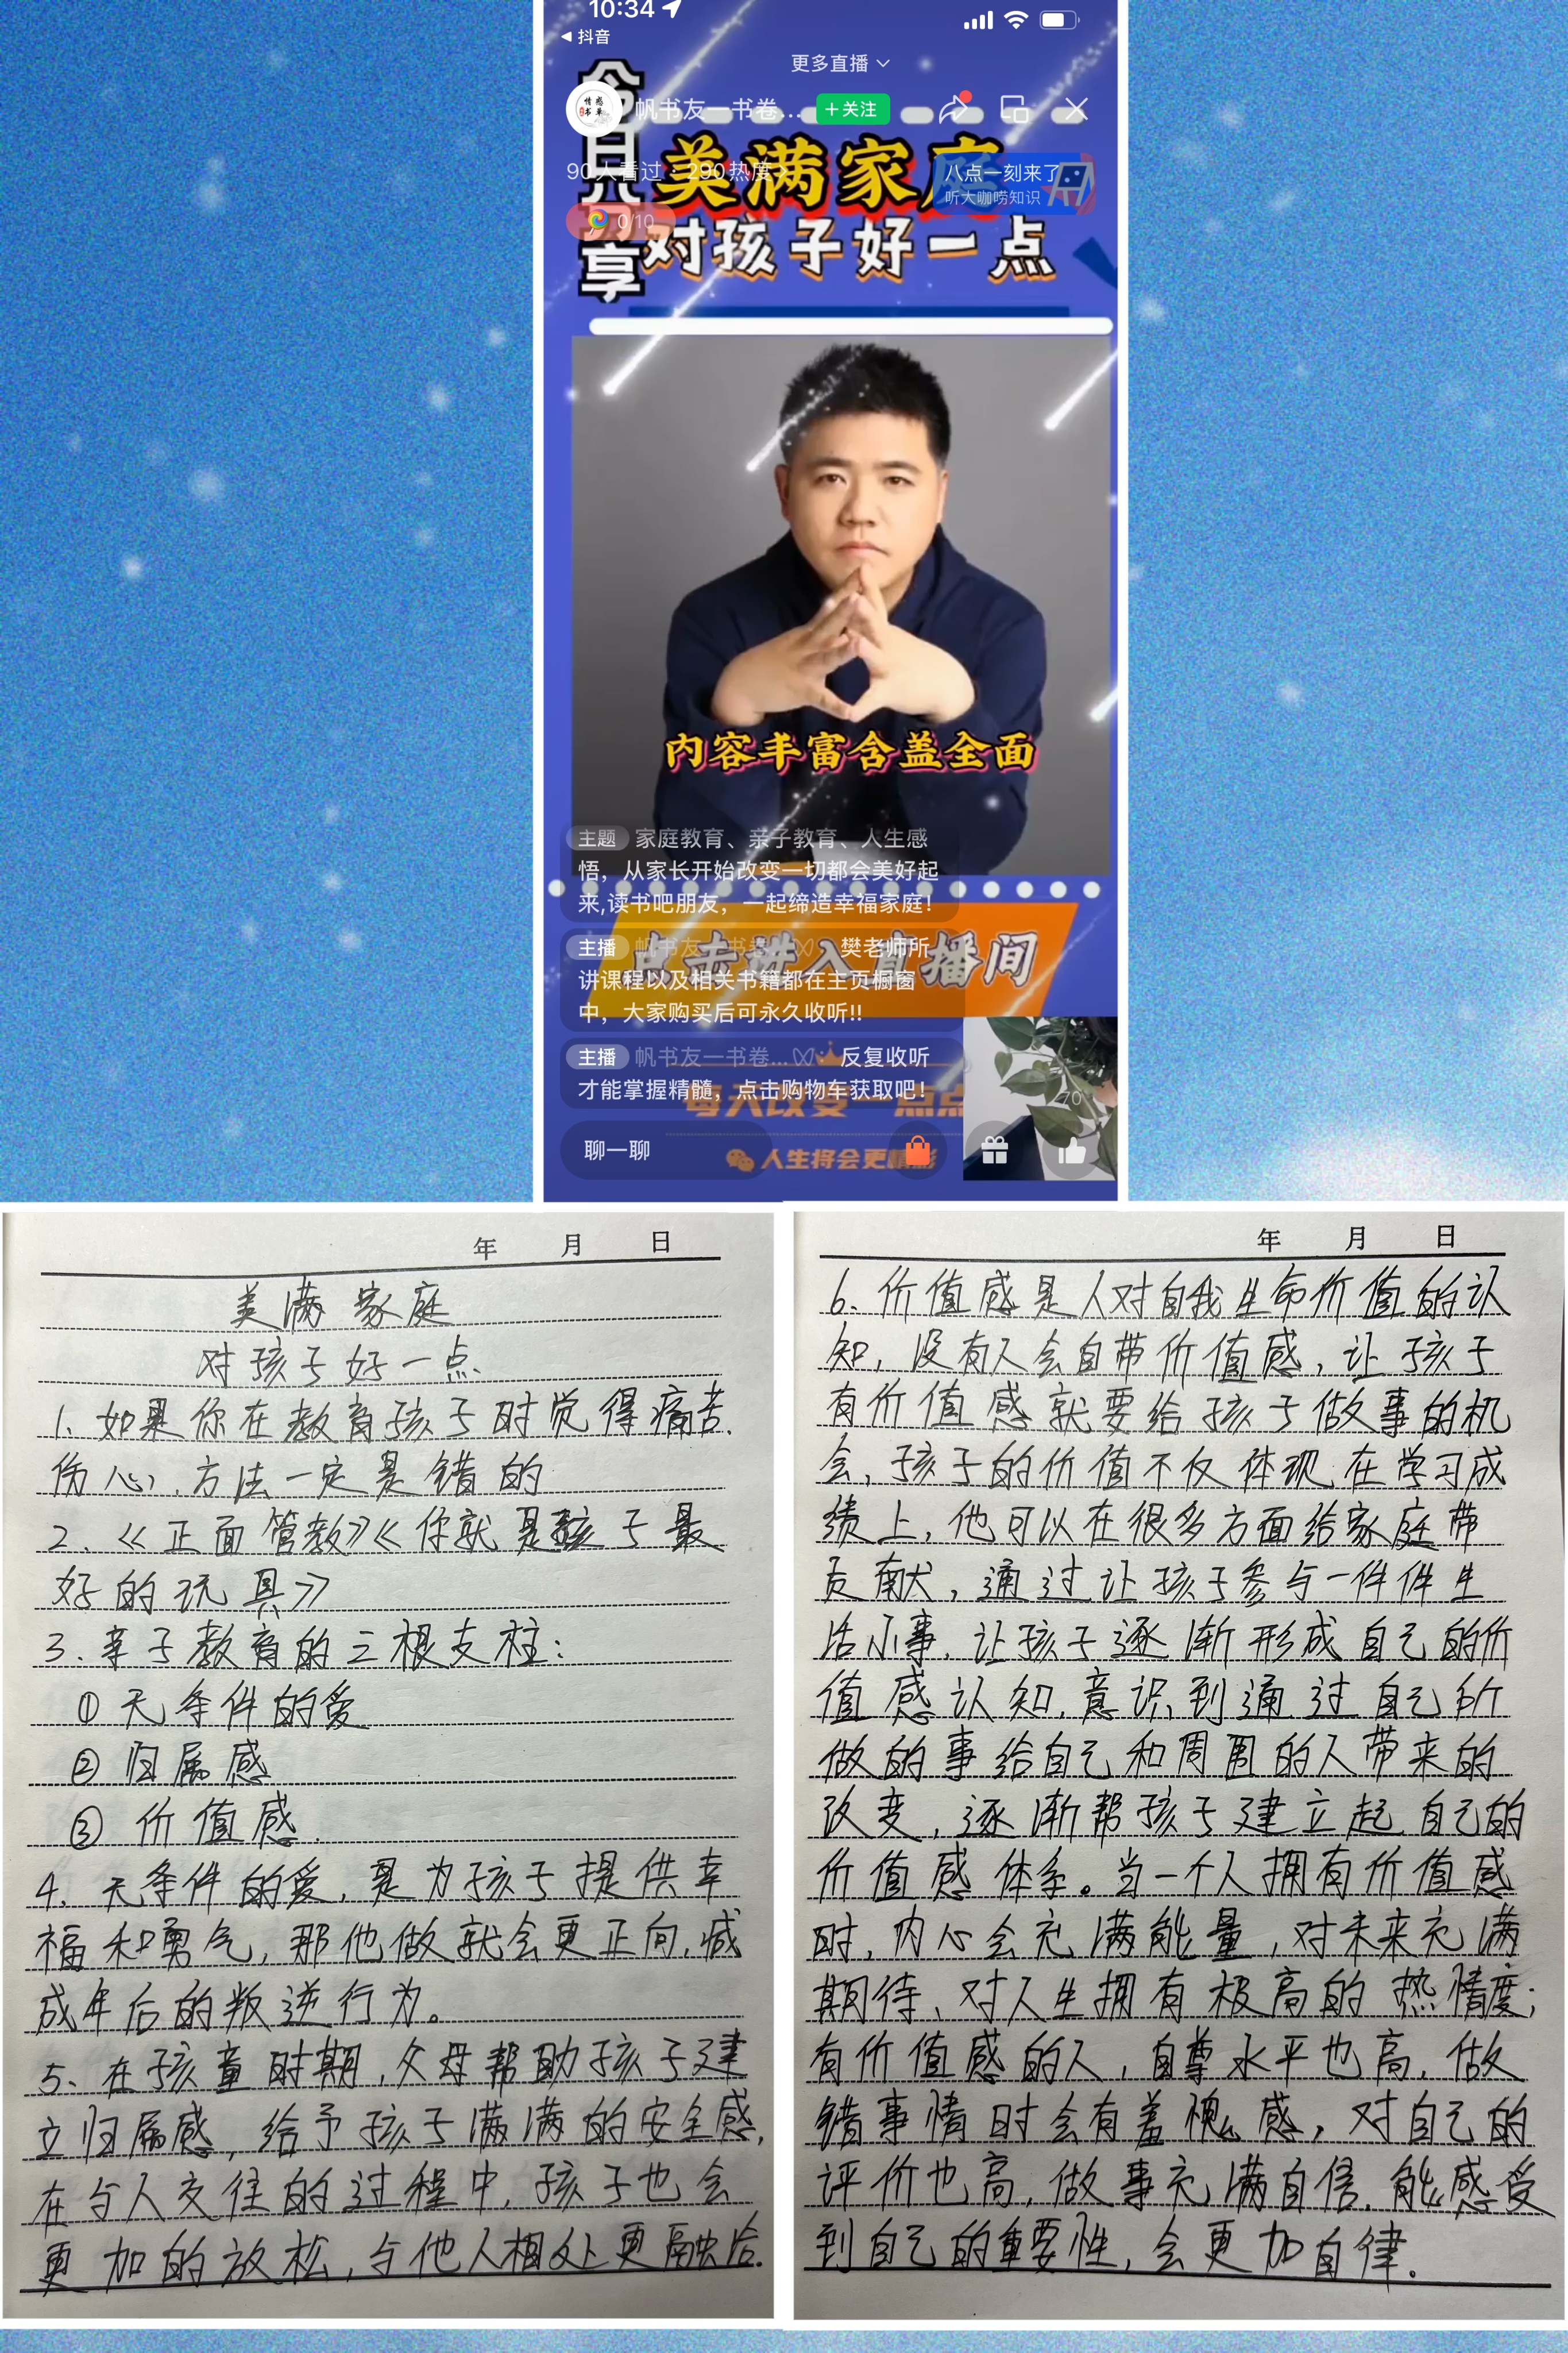 10:34
抖音
更多直播
今日分享
情感书单
帆书友一书卷...
+关注
90人看过·290热度
美满家庭
八点一刻来了
听大咖唠知识
0/10
对孩子好一点
内容丰富含盖全面
主题 家庭教育、亲子教育、人生感
悟，从家长开始改变一切都会美好起
来,读书吧朋友，一起缔造幸福家庭！
点击进入直播间
主播 帆书友一书卷... 樊老师所
讲课程以及相关书籍都在主页橱窗
中，大家购买后可永久收听!!
主播 帆书友一书卷...: 反复收听
才能掌握精髓，点击购物车获取吧！
每天改变一点点
70
聊一聊
人生将会更精彩
年 月 日
美满家庭
对孩子好一点
1、如果你在教育孩子时觉得痛苦、
伤心、方法一定是错的
2、《正面管教》《你就是孩子最
好的玩具》
3、亲子教育的三根支柱：
①无条件的爱
②归属感
③价值感
4、无条件的爱，是为孩子提供幸
福和勇气，那他做就会更正向，减
成年后的叛逆行为。
5、在孩童时期，父母帮助孩子建
立归属感，给予孩子满满的安全感，
在与人交往的过程中，孩子也会
更加的放松，与他人相处更融洽.
年 月 日
6、价值感是人对自我生命价值的认
知，没有人会自带价值感，让孩子
有价值感就要给孩子做事的机
会，孩子的价值不仅体现在学习成
绩上，他可以在很多方面给家庭带
贡献，通过让孩子参与一件件生
活小事，让孩子逐渐形成自己的价
值感认知，意识到通过自己所
做的事给自己和周围的人带来的
改变，逐渐帮孩子建立起自己的
价值感体系。当一个人拥有价值感
时，内心会充满能量，对未来充满
期待、对人生拥有极高的热情度；
有价值感的人，自尊水平也高，做
错事情时会有羞愧感，对自己的
评价也高，做事充满自信，能感受
到自己的重要性，会更加自律.